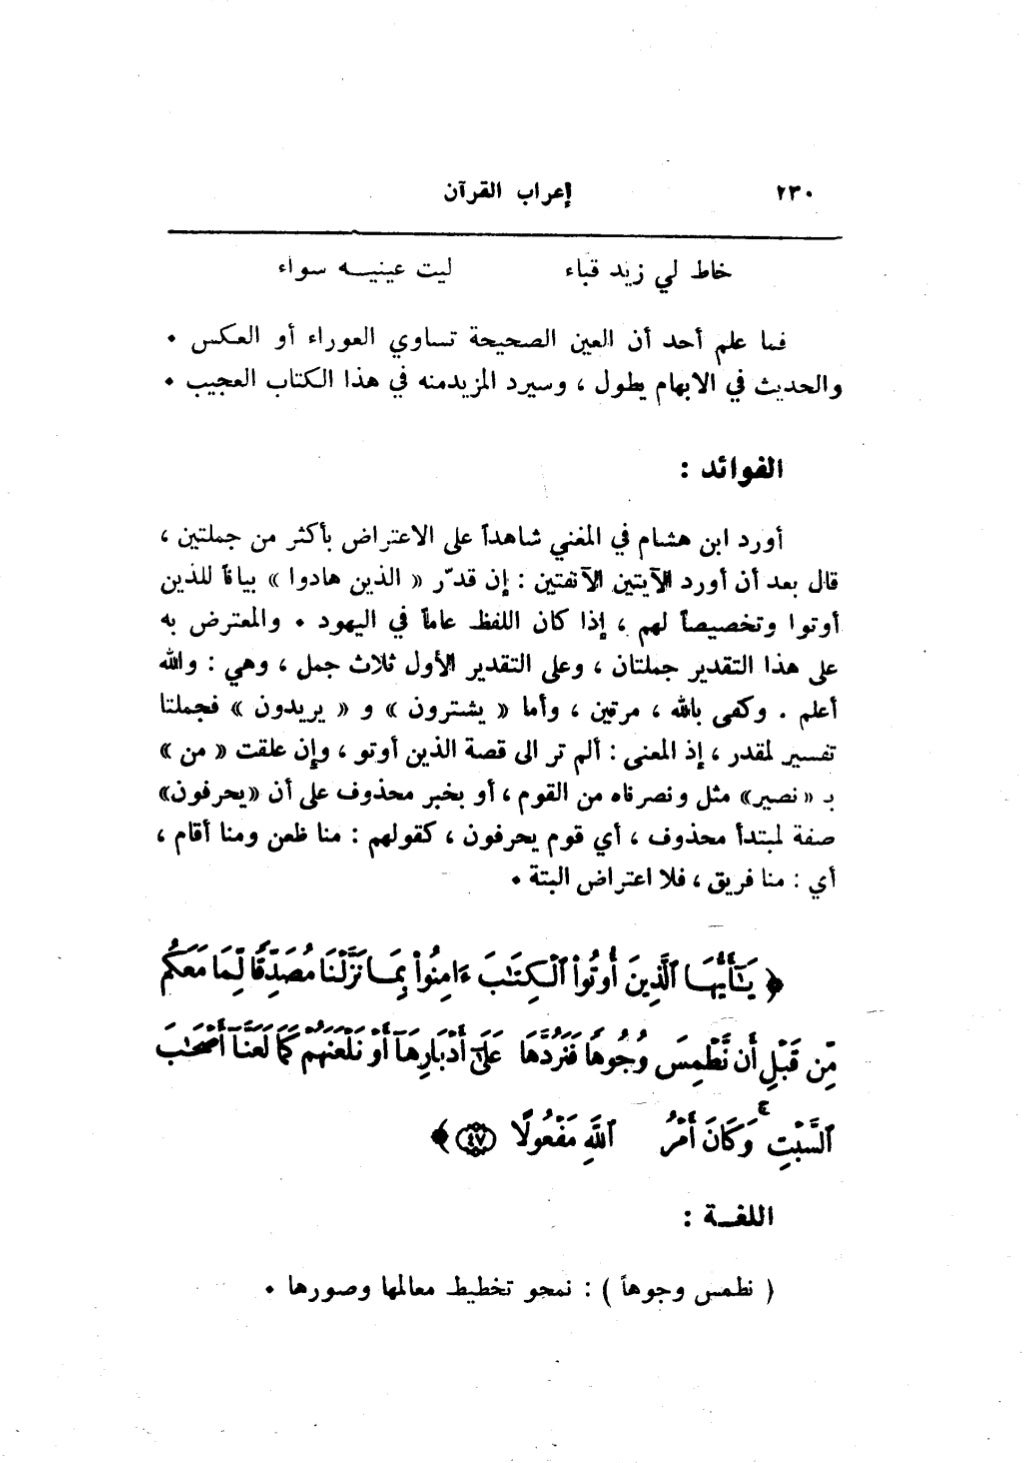 إعراب القرآن ٢٣٠
خاط لي زيد قباء ليت عينيــه سواء
فما علم أحد أن العين الصحيحة تساوي العوراء أو العكس ٠
والحديث في الابهام يطول ، وسيرد المزيدمنه في هذا الكتاب العجيب ٠
الفوائد :
أورد ابن هشام في المغني شاهداً على الاعتراض بأكثر من جملتين ،
قال بعد أن أورد الآيتين الآنفتين : إن قدّر « الذين هادوا » بياناً للذين
أوتوا وتخصيصاً لهم ، إذا كان اللفظ عاماً في اليهود ٠ والمعترض به
على هذا التقدير جملتان ، وعلى التقدير الأول ثلاث جمل ، وهي : والله
أعلم . وكفى بالله ، مرتين ، وأما « يشترون » و « يريدون » فجملتا
تفسير لمقدر ، إذ المعنى : ألم تر الى قصة الذين أوتو ، وإن علقت « من »
بـ « نصير » مثل ونصرناه من القوم ، أو بخبر محذوف على أن « يحرفون »
صفة لمبتدأ محذوف ، أي قوم يحرفون ، كقولهم : منا ظعن ومنا أقام ،
أي : منا فريق ، فلا اعتراض البتة ٠
﴿ يَٰٓأَيُّهَا ٱلَّذِينَ أُوتُواْ ٱلْكِتَٰبَ ءَامِنُواْ بِمَا نَزَّلْنَا مُصَدِّقًا لِّمَا مَعَكُم
مِّن قَبْلِ أَن نَّطْمِسَ وُجُوهًا فَنَرُدَّهَا عَلَىٰٓ أَدْبَارِهَآ أَوْ نَلْعَنَهُمْ كَمَا لَعَنَّآ أَصْحَٰبَ
ٱلسَّبْتِ ۚ وَكَانَ أَمْرُ ٱللَّهِ مَفْعُولًا ٤٧ ﴾
اللغــة :
( نطمس وجوهاً ) : نمحو تخطيط معالمها وصورها ٠